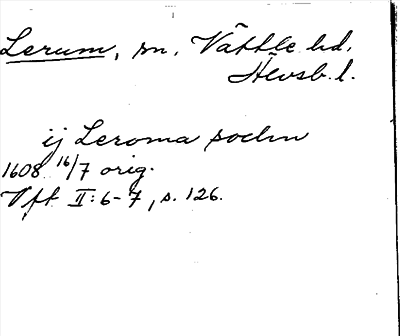 Lerum, sn. Vättle hd.
Älvsb. l.
ij Leroma sochn
1608 16/7 orig.
Vft II: 6-7, s. 126.